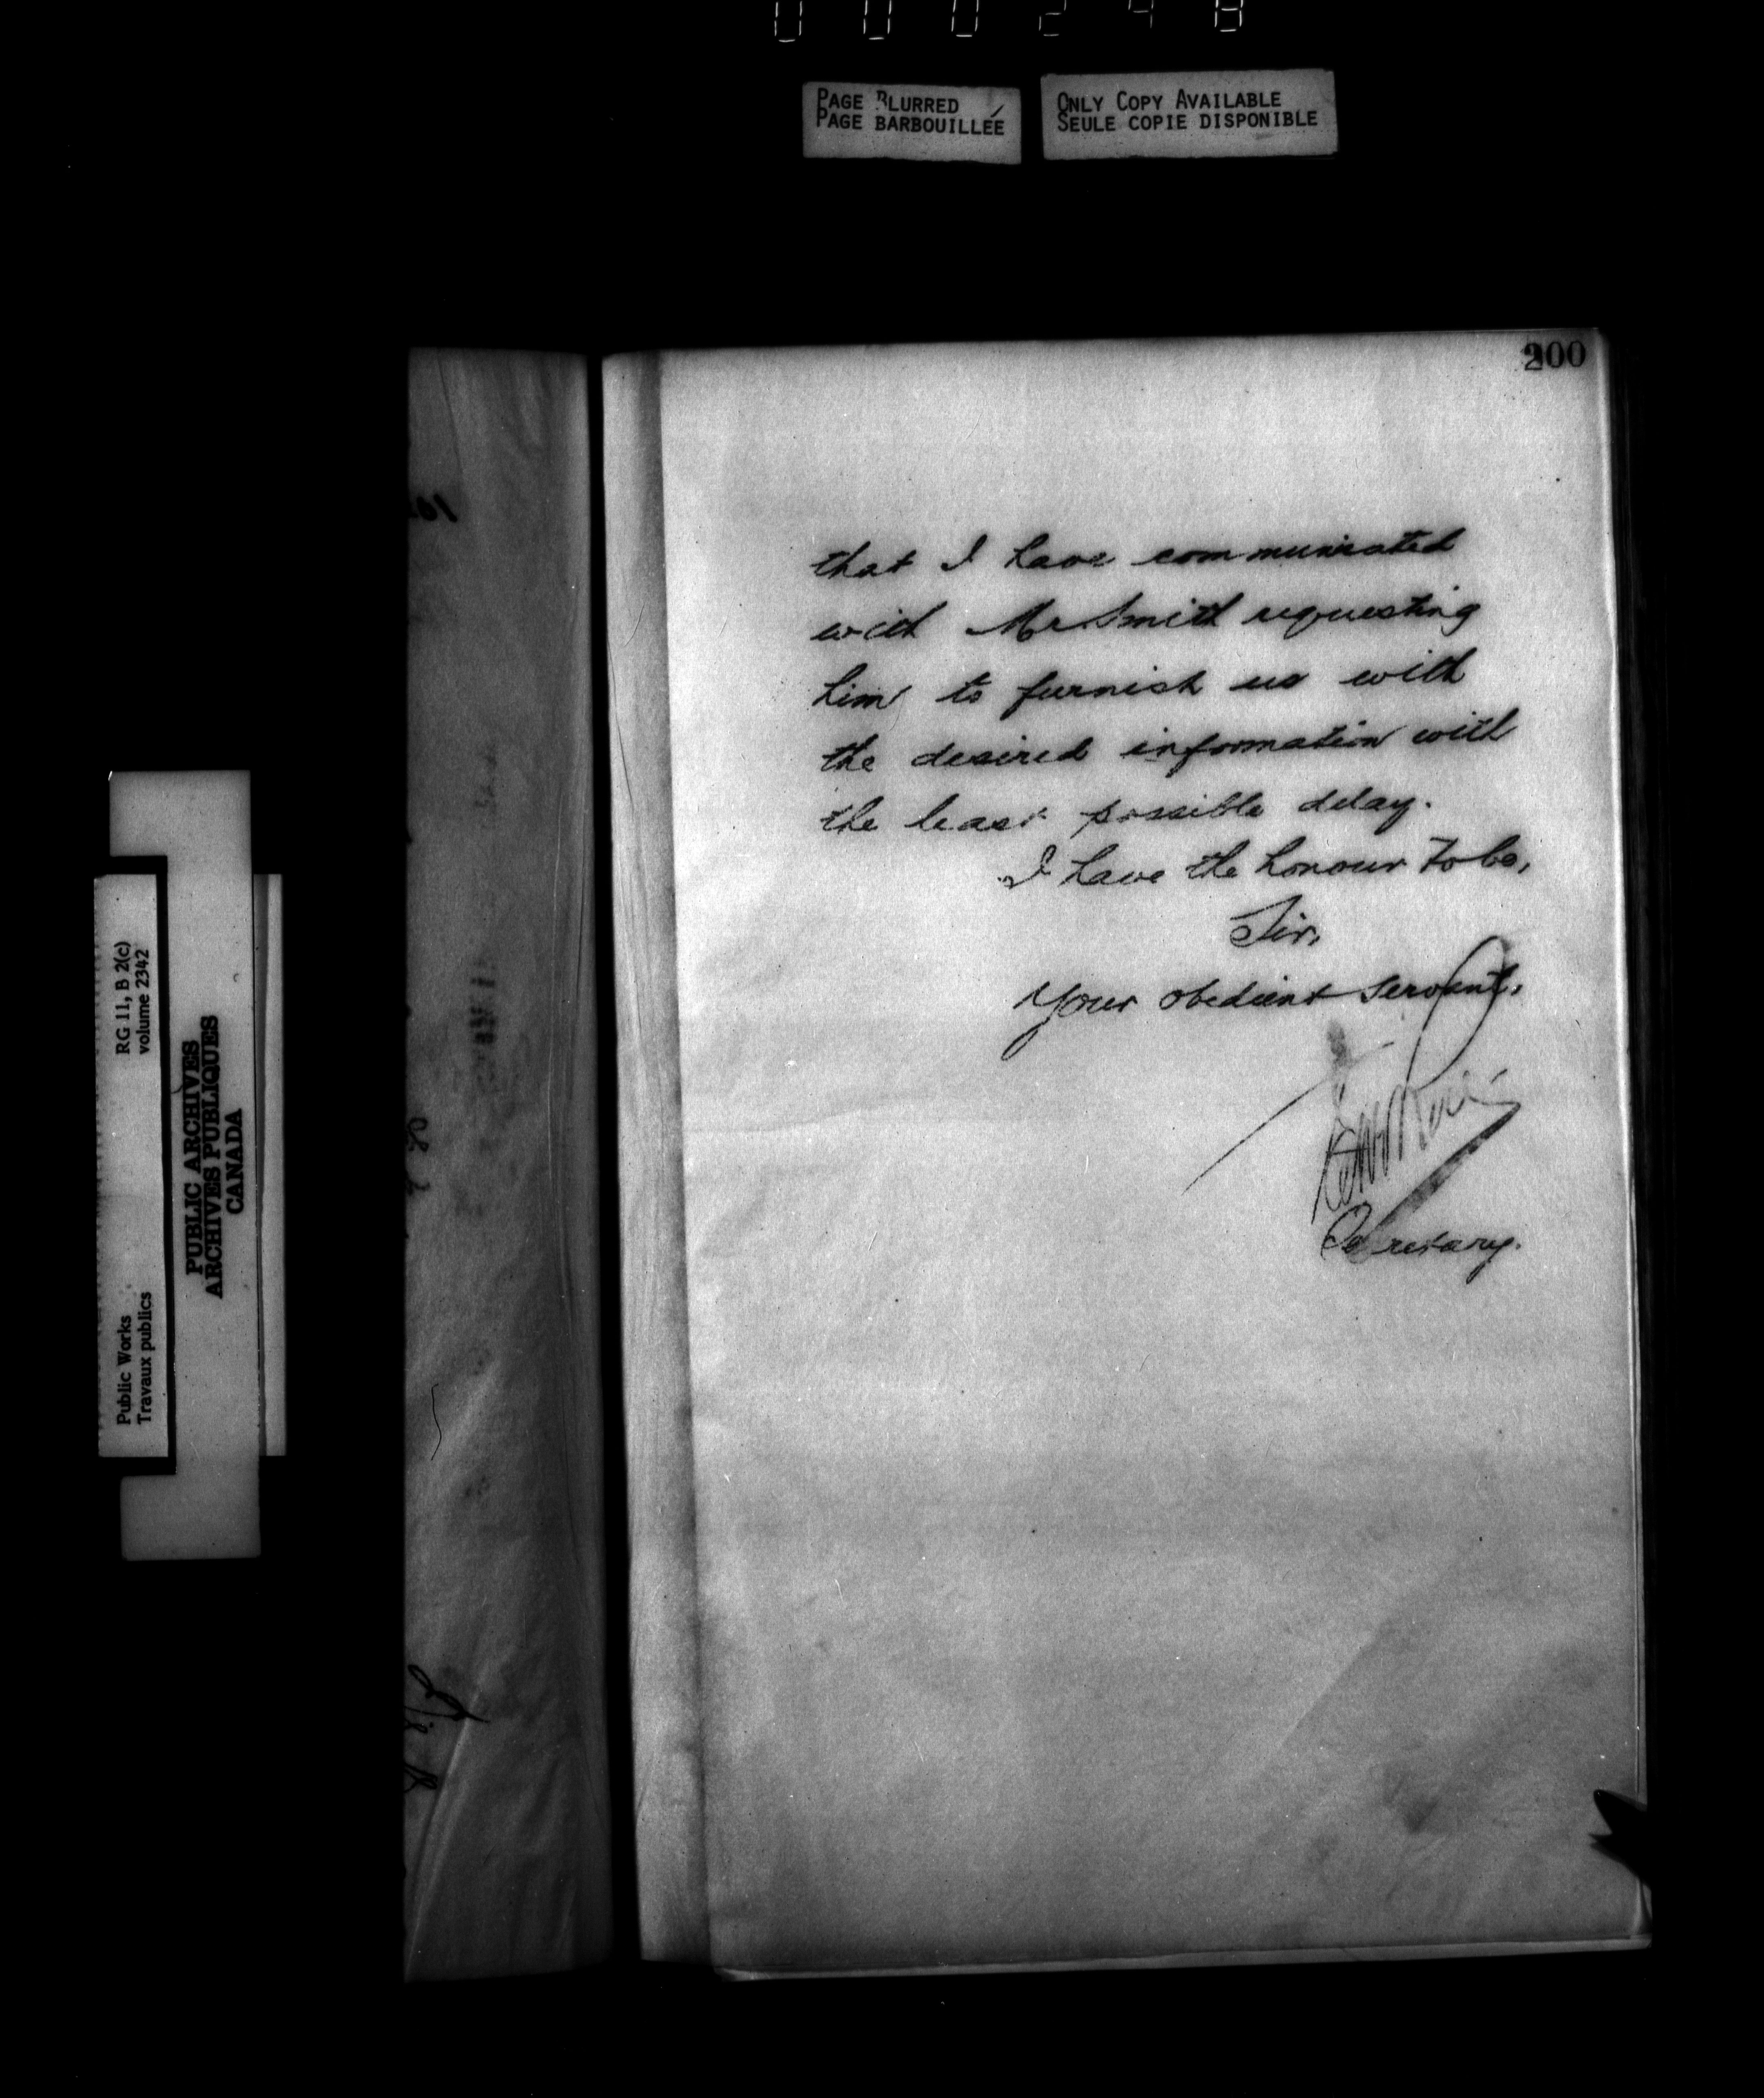 000248
PAGE BLURRED
PAGE BARBOUILLÉE
ONLY COPY AVAILABLE
SEULE COPIE DISPONIBLE
200
that I have communicated
with Mr Smith requesting
him to furnish us with
the desired information with
the least possible delay.
I have the honour to be,
Sir,
Your obedient servant,
Secretary.
RG 11, B 2(c)
volume 2342
Public Works
Travaux publics
PUBLIC ARCHIVES
ARCHIVES PUBLIQUES
CANADA